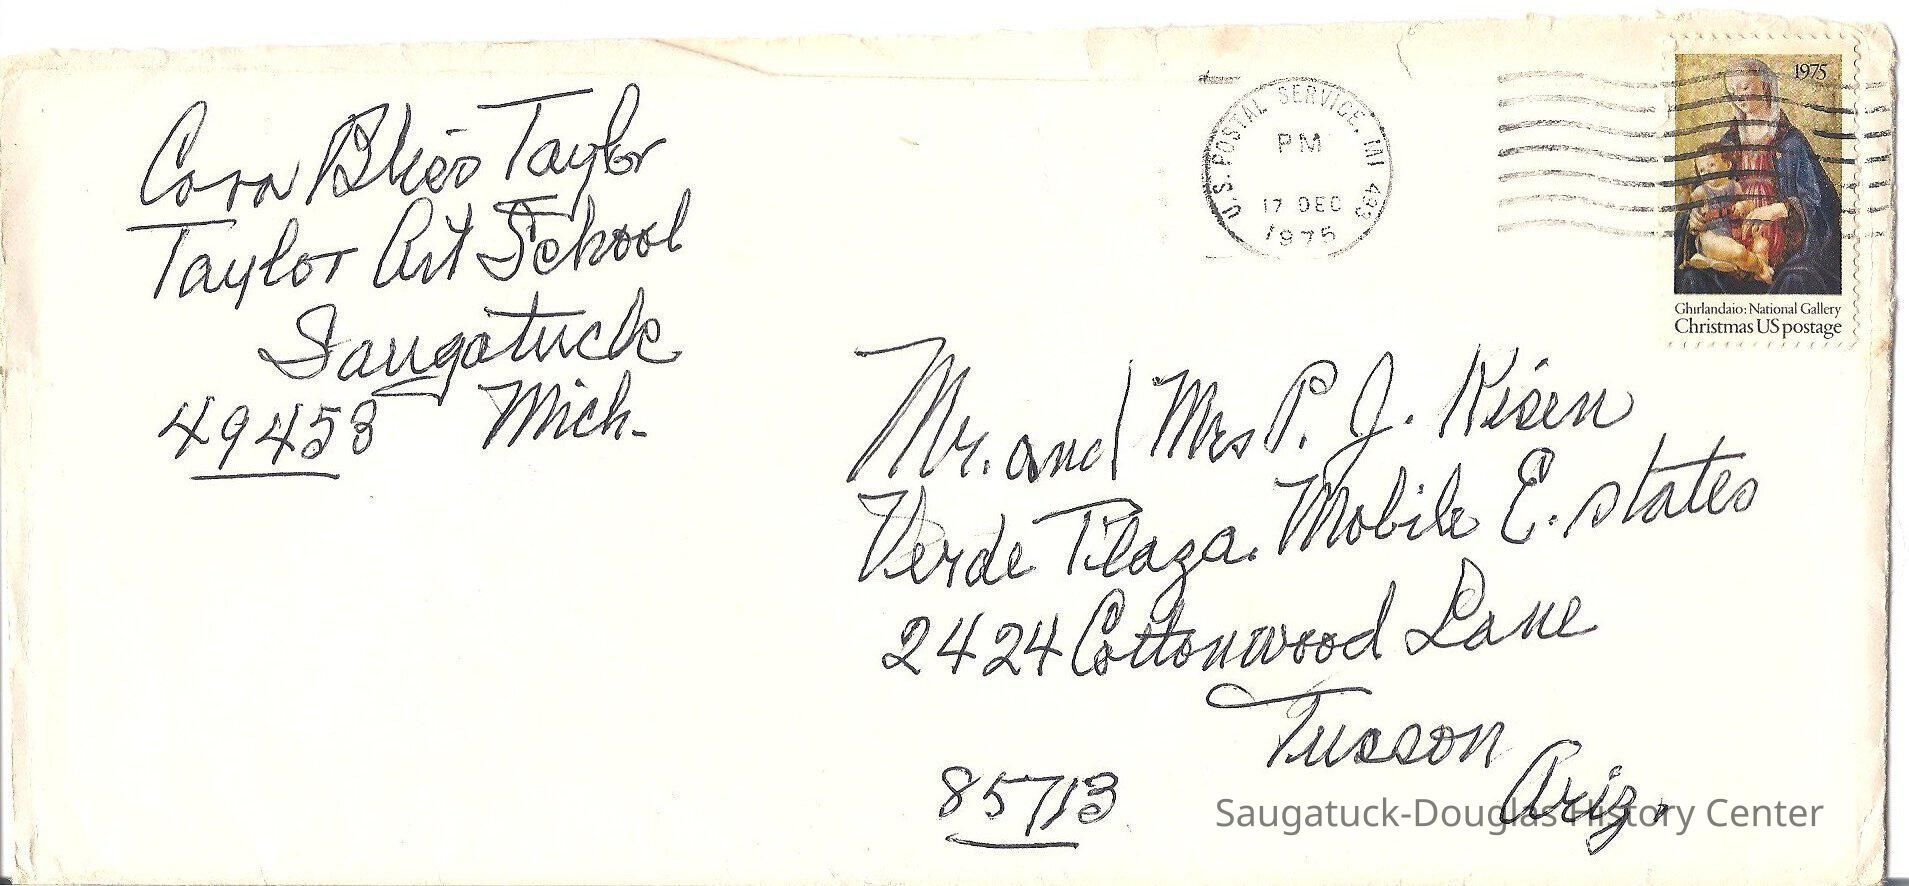 Cora Bliss Taylor
Taylor Art School
Saugatuck
49453 Mich.
U.S. POSTAL SERVICE, MI
PM
17 DEC
1975
1975
Ghirlandaio: National Gallery
Christmas US postage
Mr. and Mrs P. J. Risen
Verde Plaza. Mobile E. states
2424 Cottonwood Lane
Tucson
85713 Ariz.
Saugatuck-Douglas History Center